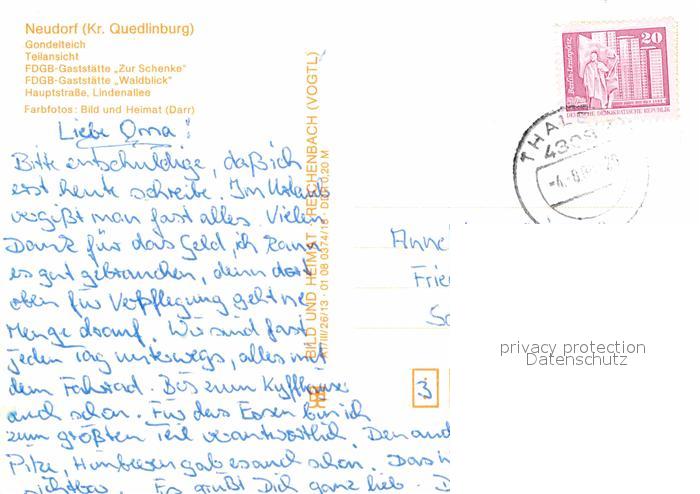 Neudorf (Kr. Quedlinburg)
Gondelteich
Teilansicht
FDGB-Gaststätte „Zur Schenke“
FDGB-Gaststätte „Waldblick“
Hauptstraße, Lindenallee
Farbfotos: Bild und Heimat (Darr)
Liebe Oma!
Bitte entschuldige, daß ich
erst heute schreibe. Im Urlaub
vergißt man fast alles. Vielen
Dank für das Geld, ich kann
es gut gebrauchen, denn dort
oben für Verpflegung geht ne
Menge drauf. Wir sind fast
jeden Tag unterwegs, alles mit
dem Fahrrad. Bis zum Kyffhäuser
auch schon. Für das Essen bin ich
zum größten Teil verantwortlich. Den and
Pilze, Himbeeren gab es auch schon. Das
Es grüßt Dich ganz lieb. D
BILD UND HEIMAT · REICHENBACH (VOGTL)
A1/III/26/13 · 01 08 0374/15 · DDR 0,20 M
Berlin-Leninplatz
20
DEUTSCHE DEMOKRATISCHE REPUBLIK
THALE
4308
-4.-8.
Anne
Frie
Sc
3
privacy protection
Datenschutz